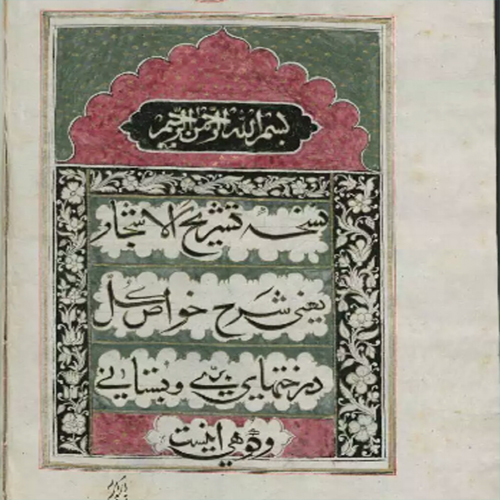 بسم الله الرحمن الرحيم
نسخهٔ تشریح الاشجار
یعنی شرح خواص کل
درختهای برّی و بستانی
وهی اینست